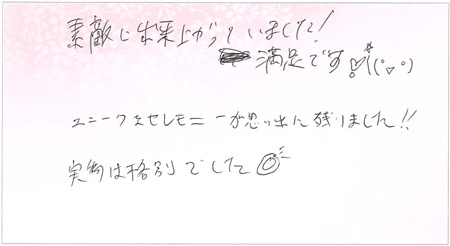 素敵に出来上がっていました!
満足です!(°▽°)
ユニークなセレモニーが思い出に残りました!!
実物は格別でした◎